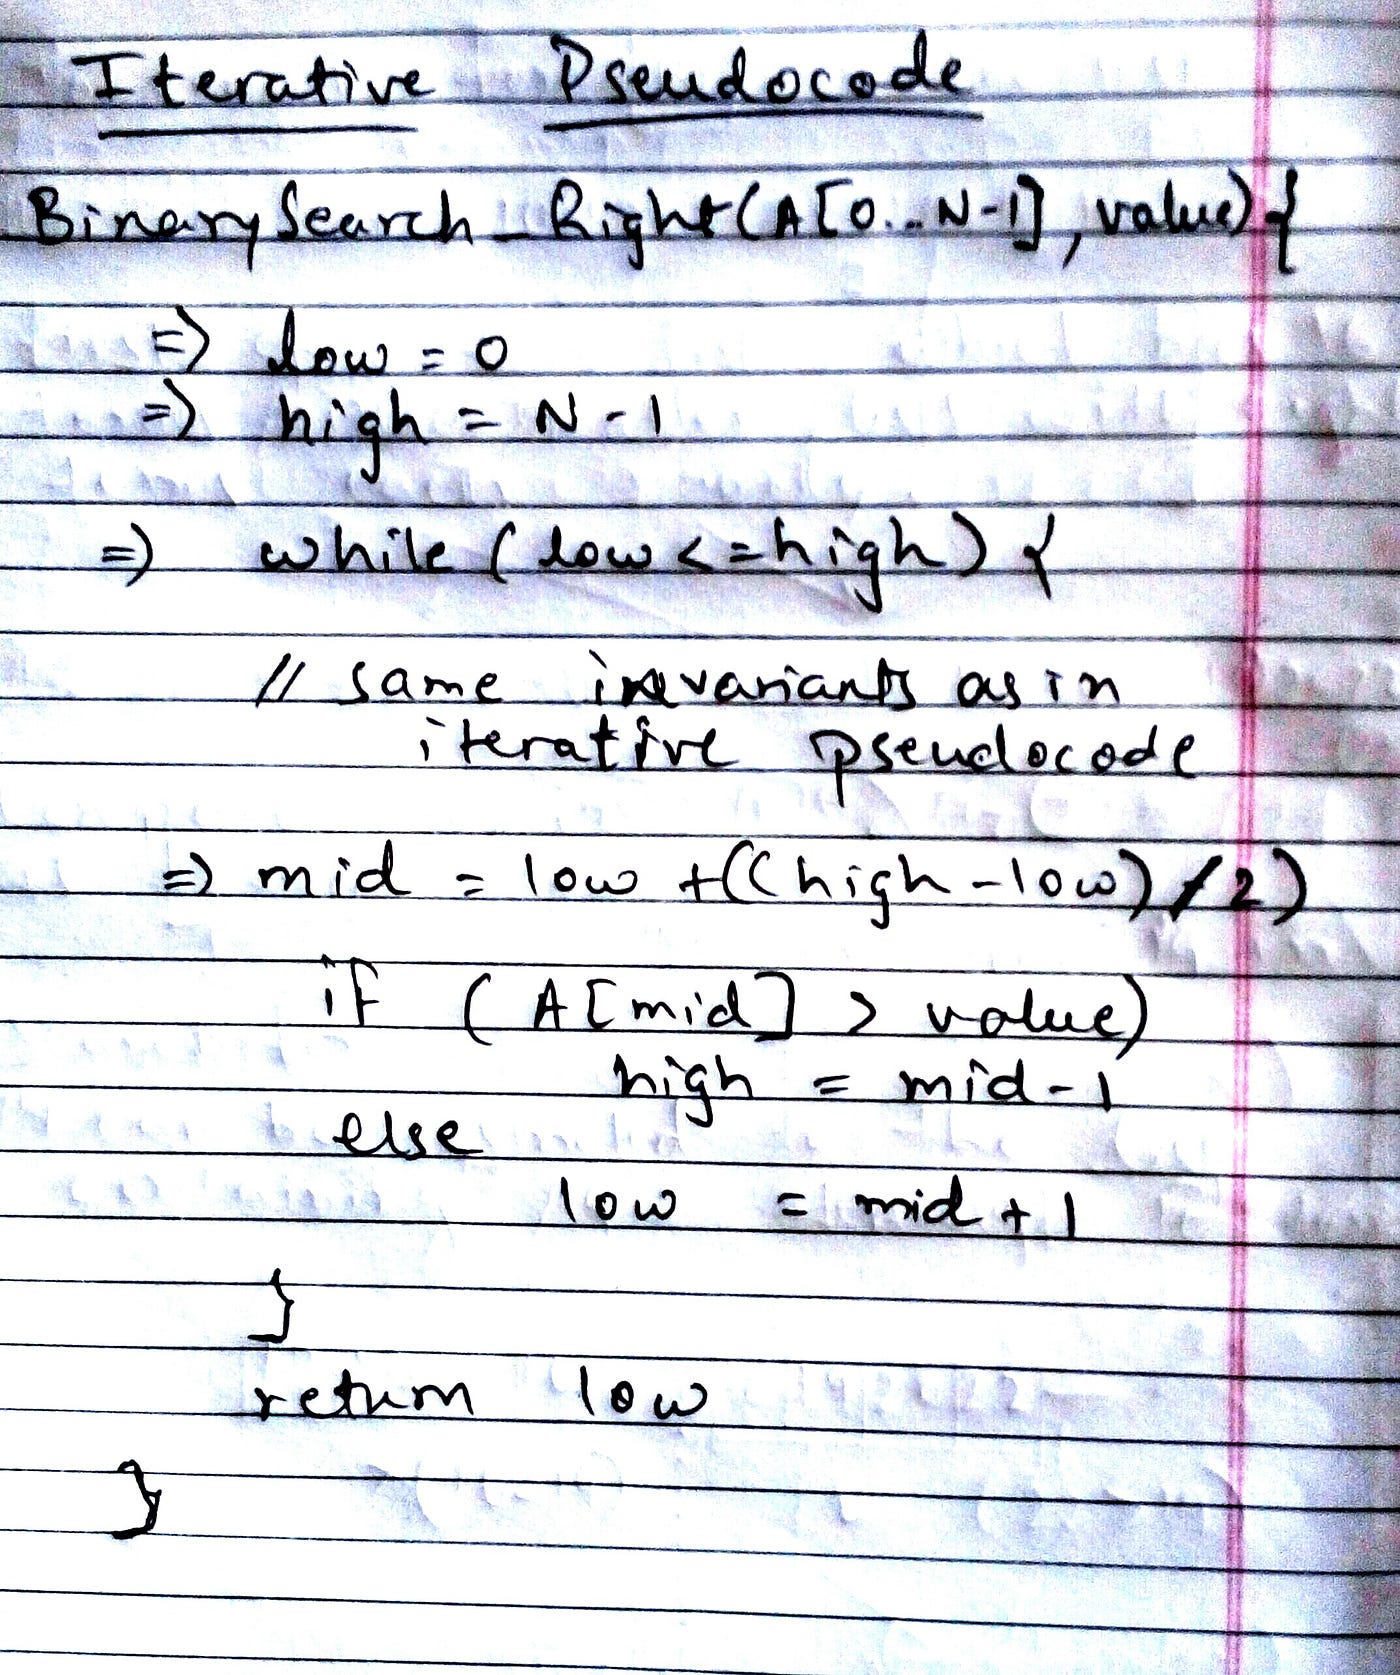 Iterative Pseudocode
BinarySearch_Right(A[0...N-1], value) {
=> low = 0
=> high = N-1
=> while (low <= high) {
// same invariants as in
iterative pseudocode
=> mid = low + ((high - low) / 2)
if (A[mid] > value)
high = mid - 1
else
low = mid + 1
}
return low
}